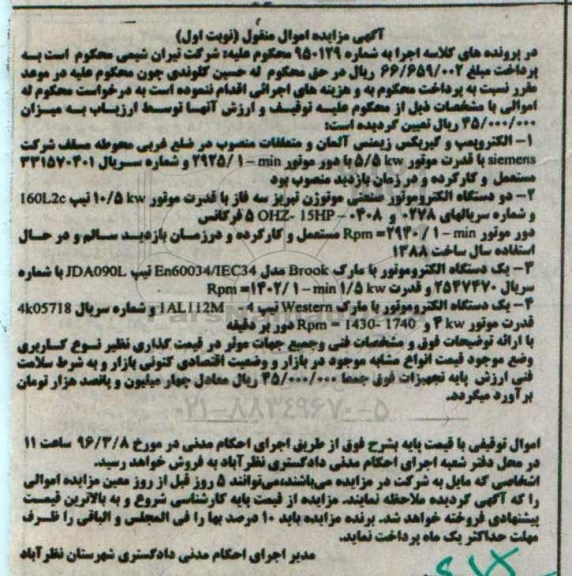 آگهی مزایده اموال منقول (نوبت اول)
در پرونده های کلاسه اجرا به شماره ۹۵۰۱۳۹ محکوم علیه: شرکت تیران شیمی محکوم است به
پرداخت مبلغ ۶۶/۶۵۹/۰۰۲ ریال در حق محکوم له حسین کلوندی چون محکوم علیه در موعد
مقرر نسبت به پرداخت محکوم به و هزینه های اجرائی اقدام ننموده است به درخواست محکوم له
اموالی با مشخصات ذیل از محکوم علیه توقیف و ارزش آنها توسط ارزیاب به میزان
۴۵/۰۰۰/۰۰۰ ریال تعیین گردیده است:
۱- الکتروپمپ و گیربکس زیمنس آلمان و متعلقات منصوب در ضلع غربی محوطه مسقف شرکت
siemens با قدرت موتور ۵/۵ kw با دور موتور ۲۹۲۵/۱ – min و شماره سریال ۳۳۱۵۷۰۴۰۱
مستعمل و کارکرده و در زمان بازدید منصوب بود
۲- دو دستگاه الکتروموتور صنعتی موتوژن تبریز سه فاز با قدرت موتور ۱۰/۵ kw تیپ 160L2c
و شماره سریالهای ۰۲۷۸ و ۰۴۰۸ – OHZ- 15HP ۵ فرکانس
دور موتور Rpm =۲۹۴۰/۱ – min مستعمل و کارکرده و درزمان بازدید سالم و در حال
استفاده سال ساخت ۱۳۸۸
۳- یک دستگاه الکتروموتور با مارک Brook مدل En60034/IEC34 تیپ JDA090L با شماره
سریال ۲۵۴۷۴۷۰ و قدرت ۱/۵ kw Rpm =۱۴۰۲/۱ – min
۴- یک دستگاه الکتروموتور با مارک Western تیپ ۴ - 1AL112M و شماره سریال 4k05718
قدرت موتور ۴ kw و Rpm = 1430- 1740 دور بر دقیقه
با ارائه توضیحات فوق و مشخصات فنی وجمیع جهات موثر در قیمت گذاری نظیر نوع کاربری
وضع موجود قیمت انواع مشابه موجود در بازار و وضعیت اقتصادی کنونی بازار و به شرط سلامت
فنی ارزش پایه تجهیزات فوق جمعا ۴۵/۰۰۰/۰۰۰ ریال معادل چهار میلیون و پانصد هزار تومان
برآورد میگردد.
۰۲۱-۸۸۳۴۹۶۷۰-۵
اموال توقیفی با قیمت پایه بشرح فوق از طریق اجرای احکام مدنی در مورخ ۹۶/۳/۸ ساعت ۱۱
در محل دفتر شعبه اجرای احکام مدنی دادگستری نظرآباد به فروش خواهد رسید.
اشخاصی که مایل به شرکت در مزایده می‌باشند،می‌توانند ۵ روز قبل از روز معین مزایده اموالی
را که آگهی گردیده ملاحظه نمایند. مزایده از قیمت پایه کارشناسی شروع و به بالاترین قیمت
پیشنهادی فروخته خواهد شد. برنده مزایده باید ۱۰ درصد بها را فی المجلس و الباقی را ظرف
مهلت حداکثر یک ماه پرداخت نماید.
مدیر اجرای احکام مدنی دادگستری شهرستان نظرآباد